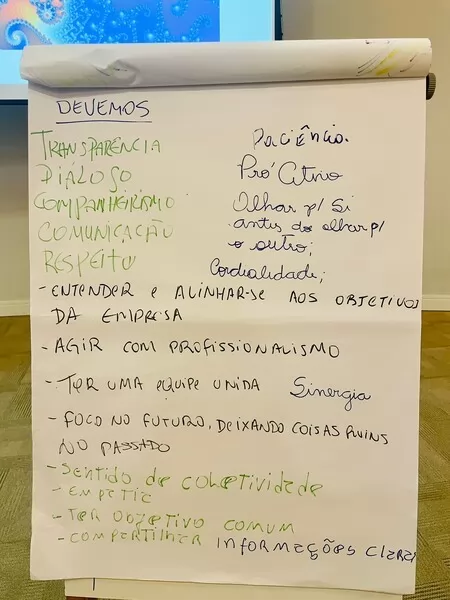 DEVEMOS
TRANSPARÊNCIA
DIÁLOGO
COMPANHEIRISMO
COMUNICAÇÃO
RESPEITO
Paciência.
Pró Ativo
Olhar p/ Si
antes do olhar p/
o outro;
Cordialidade;
- ENTENDER e ALINHAR-SE AOS OBJETIVOS
DA EMPRESA
- AGIR COM PROFISSIONALISMO
- TER UMA equipe UNIDA Sinergia
- FOCO NO FUTURO, DEIXANDO COISAS RUINS
NO PASSADO
- SENTIDO de COLETIVIDADE
- EMPATIA
- TER OBJETIVO COMUM
- COMPARTILHAR INFORMAÇÕES CLARAS